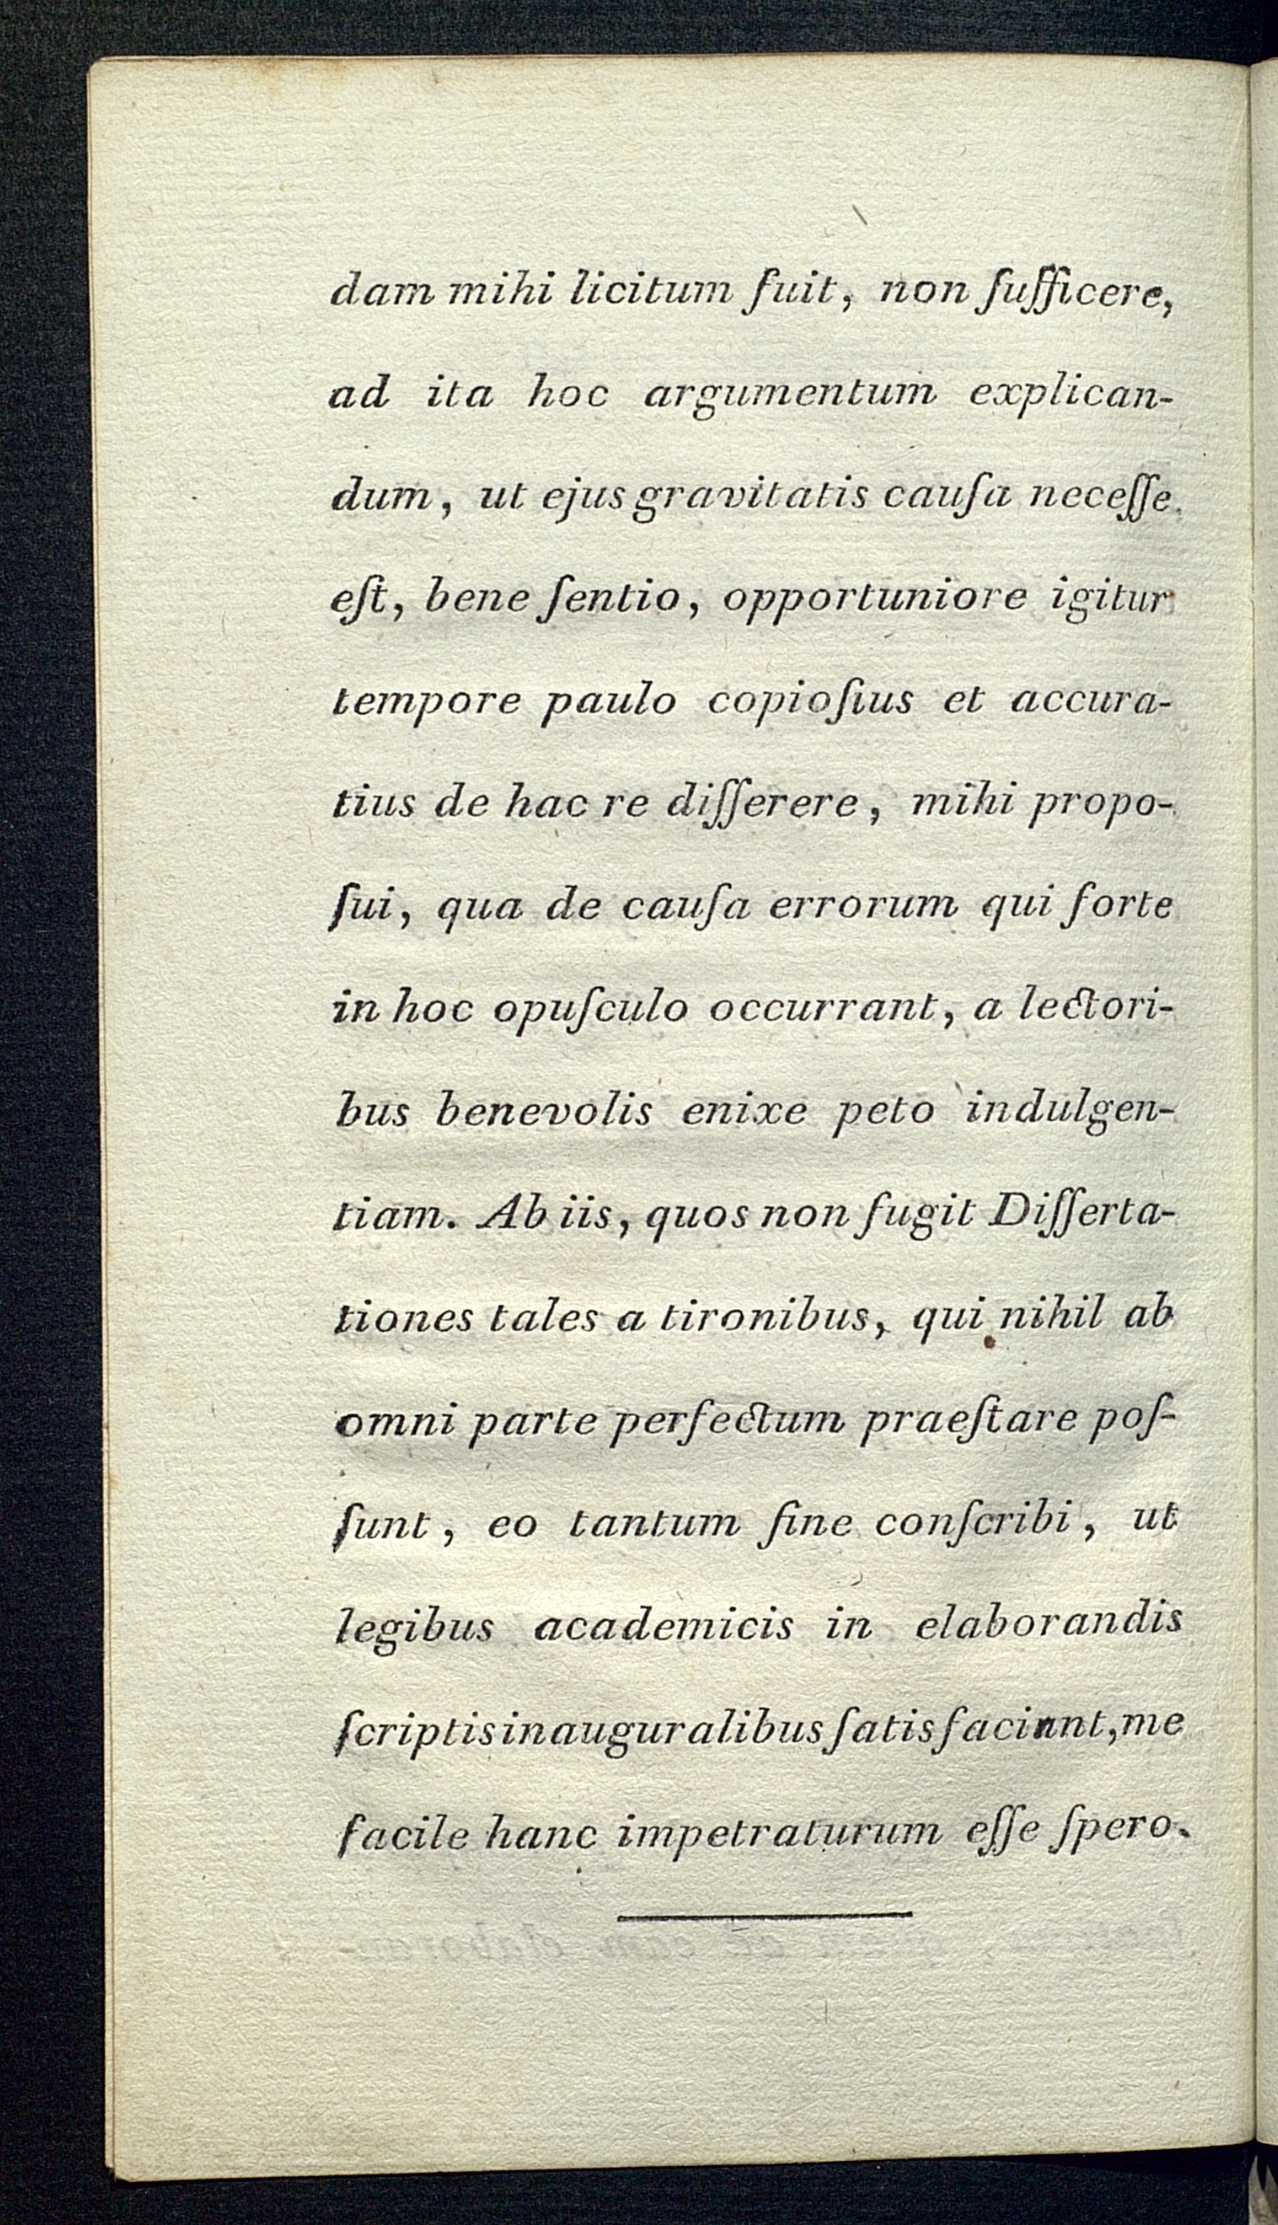 dam mihi licitum fuit, non ſufficere,
ad ita hoc argumentum explican-
dum, ut ejus gravitatis cauſa neceſſe
eſt, bene ſentio, opportuniore igitur
tempore paulo copioſius et accura-
tius de hac re diſſerere, mihi propo-
ſui, qua de cauſa errorum qui forte
in hoc opuſculo occurrant, a lectori-
bus benevolis enixe peto indulgen-
tiam. Ab iis, quos non fugit Diſſerta-
tiones tales a tironibus, qui nihil ab
omni parte perfectum praeſtare poſ-
ſunt, eo tantum fine conſcribi, ut
legibus academicis in elaborandis
ſcriptis inauguralibus ſatisfaciant, me
facile hanc impetraturum eſſe ſpero.